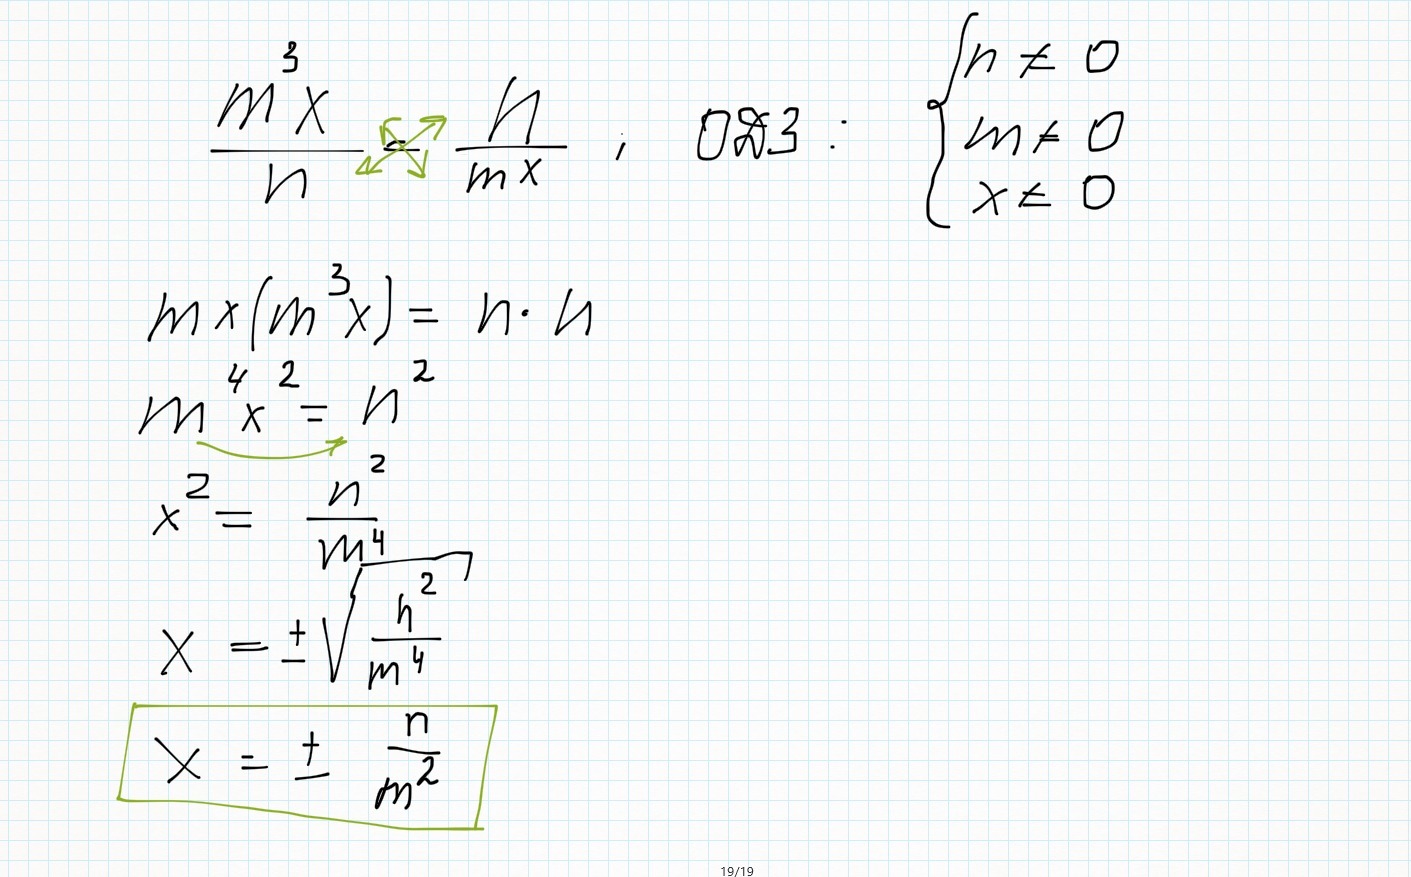 m³x/n = n/mx ; ОДЗ : { n ≠ 0
m ≠ 0
x ≠ 0
mx(m³x) = n · n
m⁴x² = n²
x² = n²/m⁴
x = ±√(n²/m⁴)
x = ± n/m²
19/19